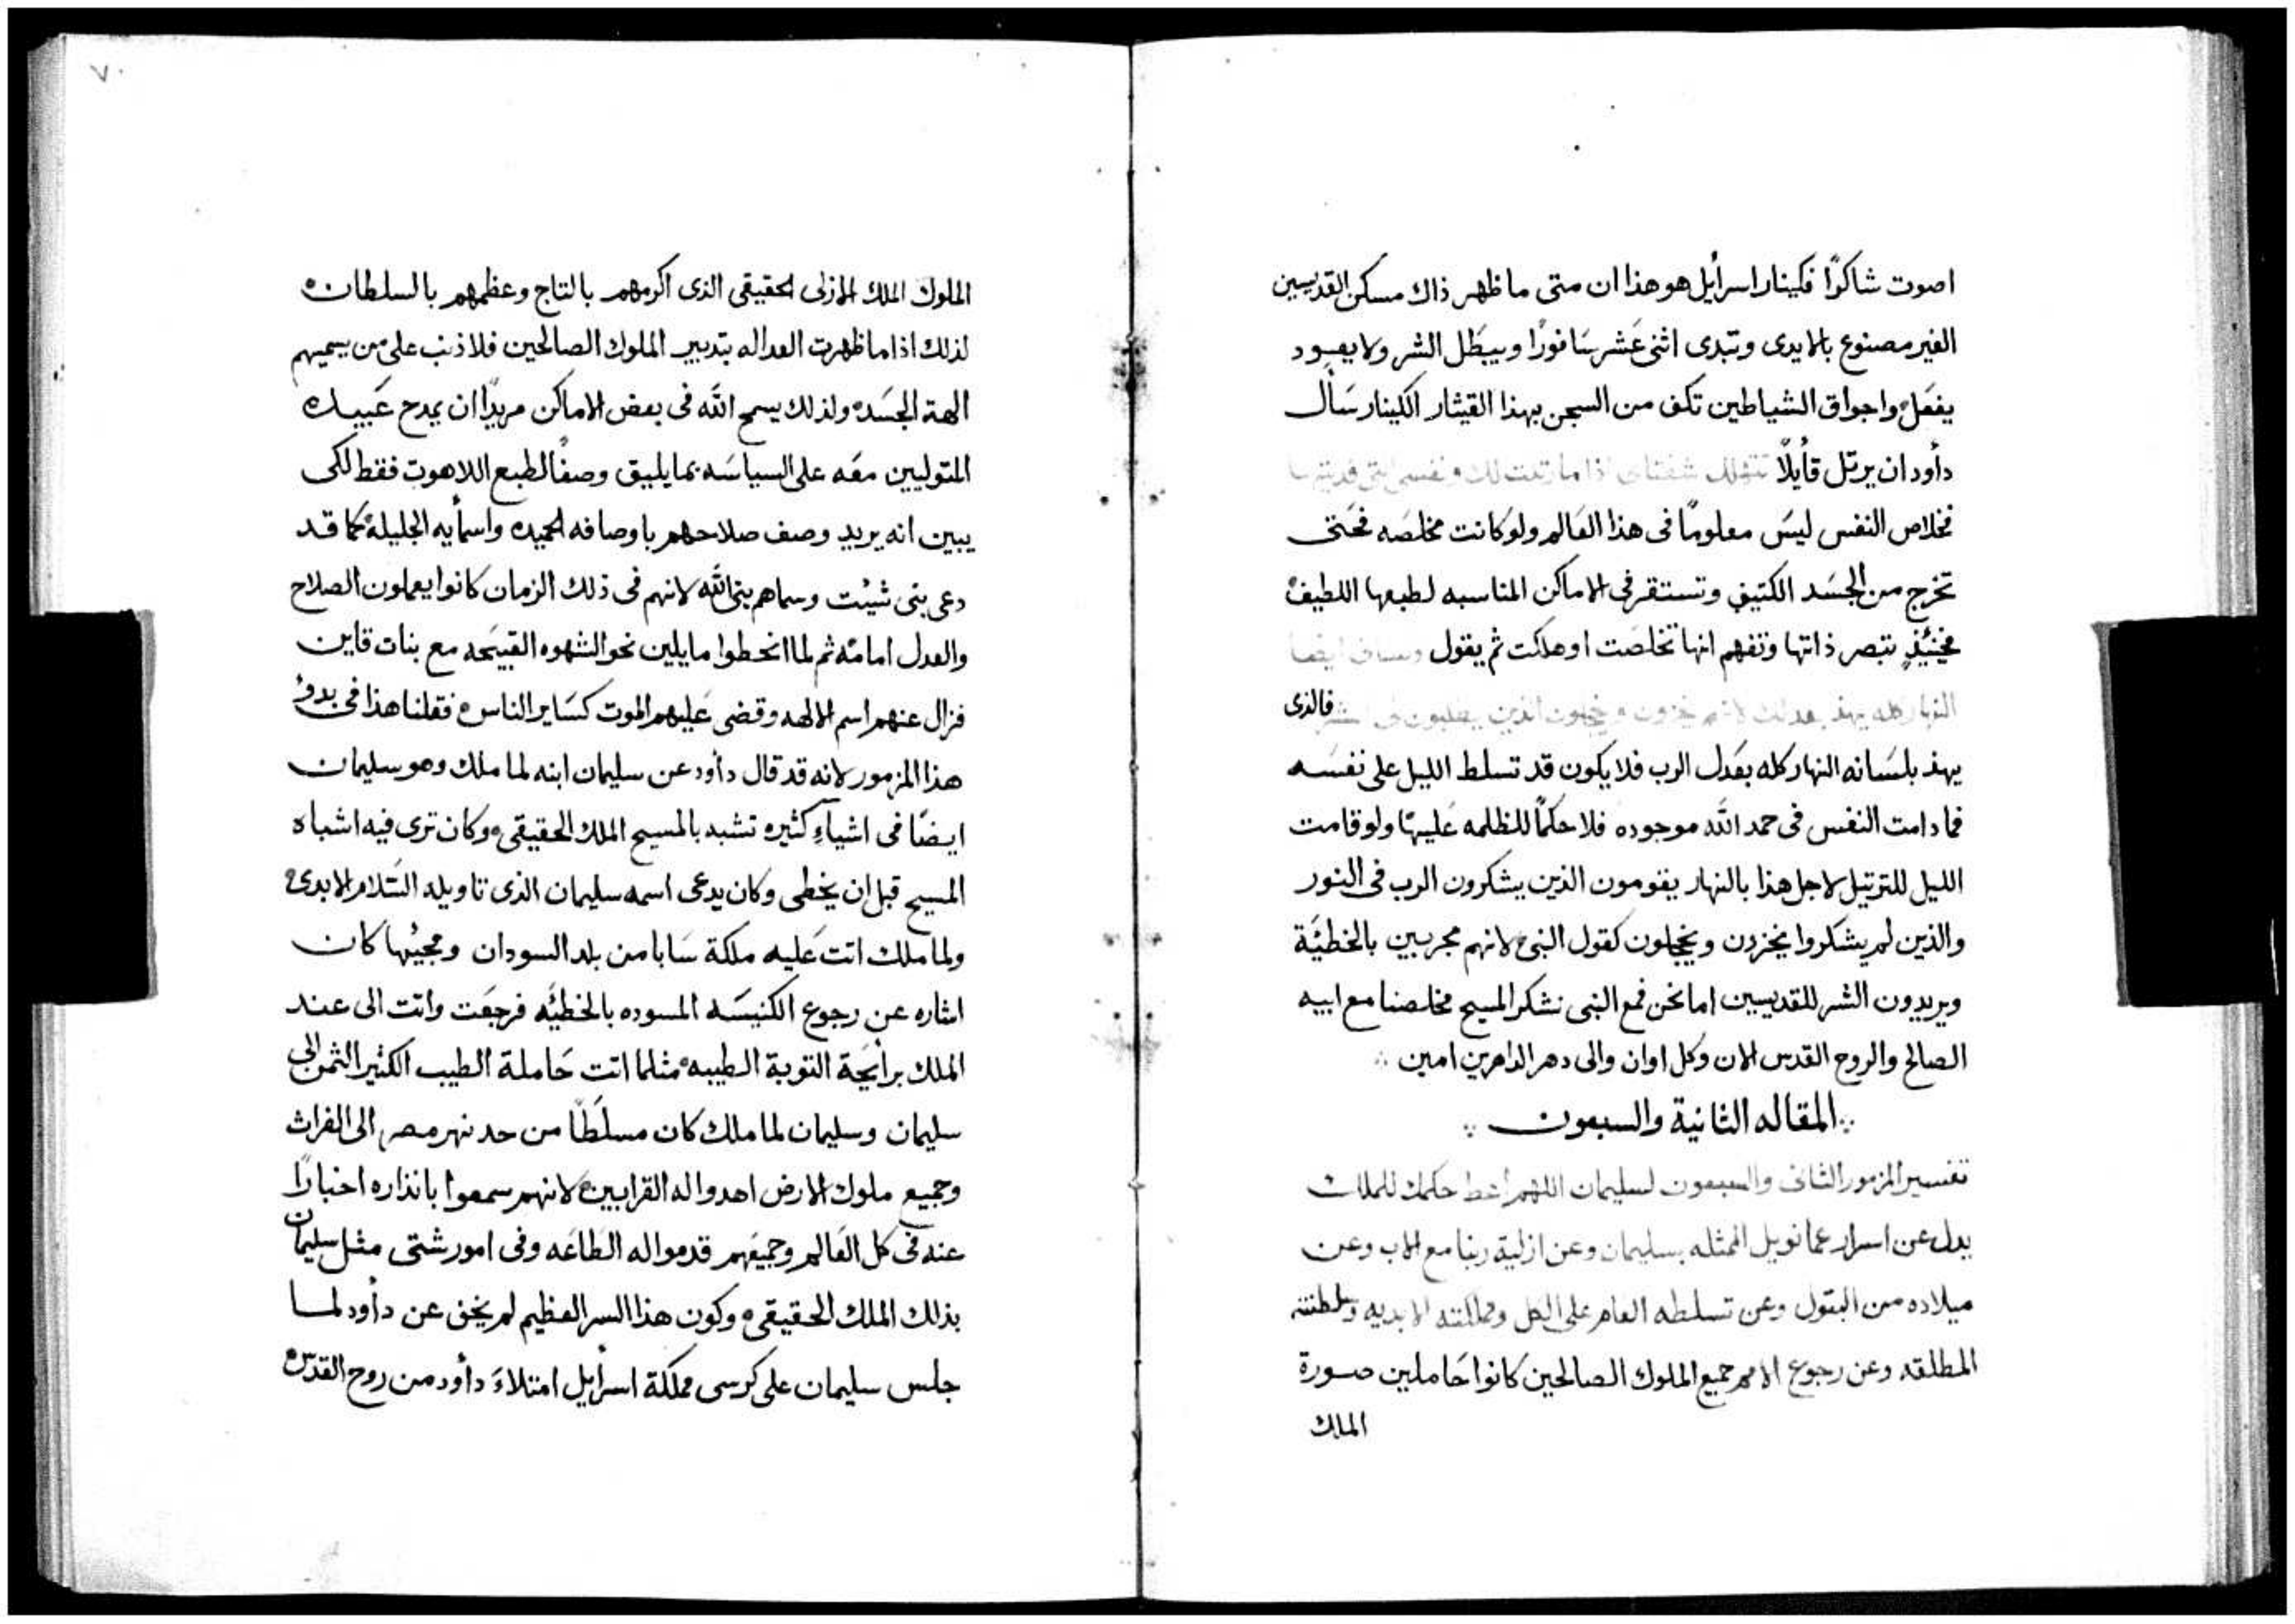 اصوت شاكرًا فكينار اسرأيل هو هذا ان متى ما ظهر ذاك مسكن القديسين
الغير مصنوع بالايدى وتبدى اثنى عَشر سَافورًا ويبَطل الشر ولا يعود
يفعَل واجواق الشياطين تكف من السجن بهذا القيثار الكينار سَأل
دأود ان يرتل قأيلاً تتهلل شفتاى اذا ما رتلت لك ونفسى التى فديتها
فخلاص النفس ليسَ معلومًا فى هذا العَالم ولو كانت مخلصَه فحَتى
تخرج من الجسَد الكتيف وتستقر فى الاماكن المناسبه لطبعها اللطيف
فحينئذٍ تبصر ذاتها وتفهم انها تخلصَت او هلكت ثم يقول ولسانى ايضا
النهار كله يهذ بعدلك لانهم يخزون ويخجلون الذين يطلبون لى الشر فالذى
يهذ بلسَانه النهار كله بعَدل الرب فلا يكون قد تسلط الليل على نفسَه
فما دامت النفس فى حمد الله موجوده فلا حكمًا للظلمه عَليهَا ولو قامت
الليل للترتيل لاجل هذا بالنهار يقومون الذين يشكرون الرب فى النور
والذين لم يشكروا يخزون ويخجلون كقول النبى لانهم مجربين بالخطيَة
ويريدون الشر للقديسين اما نحن فمع النبى نشكر المسيح مخلصنا مع ابيه
الصالح والروح القدس الان وكل اوان والى دهر الداهرين امين
المقاله الثانية والسبعون
تفسير المزمور الثانى والسبعون لسليمان اللهم اعط حكمك للملك
يدل عن اسرار عمانويل الممثله بسليمان وعن ازلية ربنا مع الاب وعن
ميلاده من البتول وعن تسلطه العام على الكل ومملكته الابديه وسلطنته
المطلقه وعن رجوع الامم جميع الملوك الصالحين كانوا حَاملين صورة
الملك
٧٠
الملوك الملك الازلى الحقيقى الذى اكرمهم بالتاج وعظمهم بالسلطان
لذلك اذا ما ظهرت العداله بتدبير الملوك الصالحين فلا ذنب على من يسميهم
الهة الجسَد ولذلك يسمح الله فى بعض الاماكن مريدًا ان يمدح عَبيده
المتوليين معَه على السياسَه بما يليق وصفًا لطبع اللاهوت فقط لكى
يبين انه يريد وصف صلاحهم باوصافه الحميده واسمأيه الجليلة كما قد
دعى بنى شيئت وسماهم بنى الله لانهم فى ذلك الزمان كانوا يعملون الصلاح
والعدل امامه ثم لما انحطوا مايلين نحو الشهوه القبيحَه مع بنات قاين
فزال عنهم اسم الالهه وقضى عَليهم الموت كسَاير الناس فقلنا هذا فى بدؤ
هذا المزمور لانه قد قال دأود عن سليمان ابنه لما ملك وهو سليمان
ايضًا فى اشياءٍ كثيره تشبه بالمسيح الملك الحقيقى وكان ترى فيه اشباه
المسيح قبل ان يخطى وكان يدعى اسمه سليمان الذى تاويله السَلام الابدى
ولما ملك اتت عَليه ملكة سَابا من بلد السودان ومجيُها كان
اشاره عن رجوع الكنيسَه المسوده بالخطيَه فرجعَت واتت الى عند
الملك برأيحَة التوبة الطيبه مثلما اتت حَاملة الطيب الكثير الثمن الى
سليمان وسليمان لما ملك كان مسلَطًا من حد نهر مصر الى الفراث
وجميع ملوك الارض اهدوا له القرابين لانهم سمعوا بانذاره اخبارًا
عنه فى كل العَالم وجميعَهم قدموا له الطاعَه وفى امور شتى مثل سليمان
بذلك الملك الحقيقى وكون هذا السر العظيم لم يخف عن دأود لما
جلس سليمان على كرسى مملكة اسرأيل امتلاءَ دأود من روح القدس